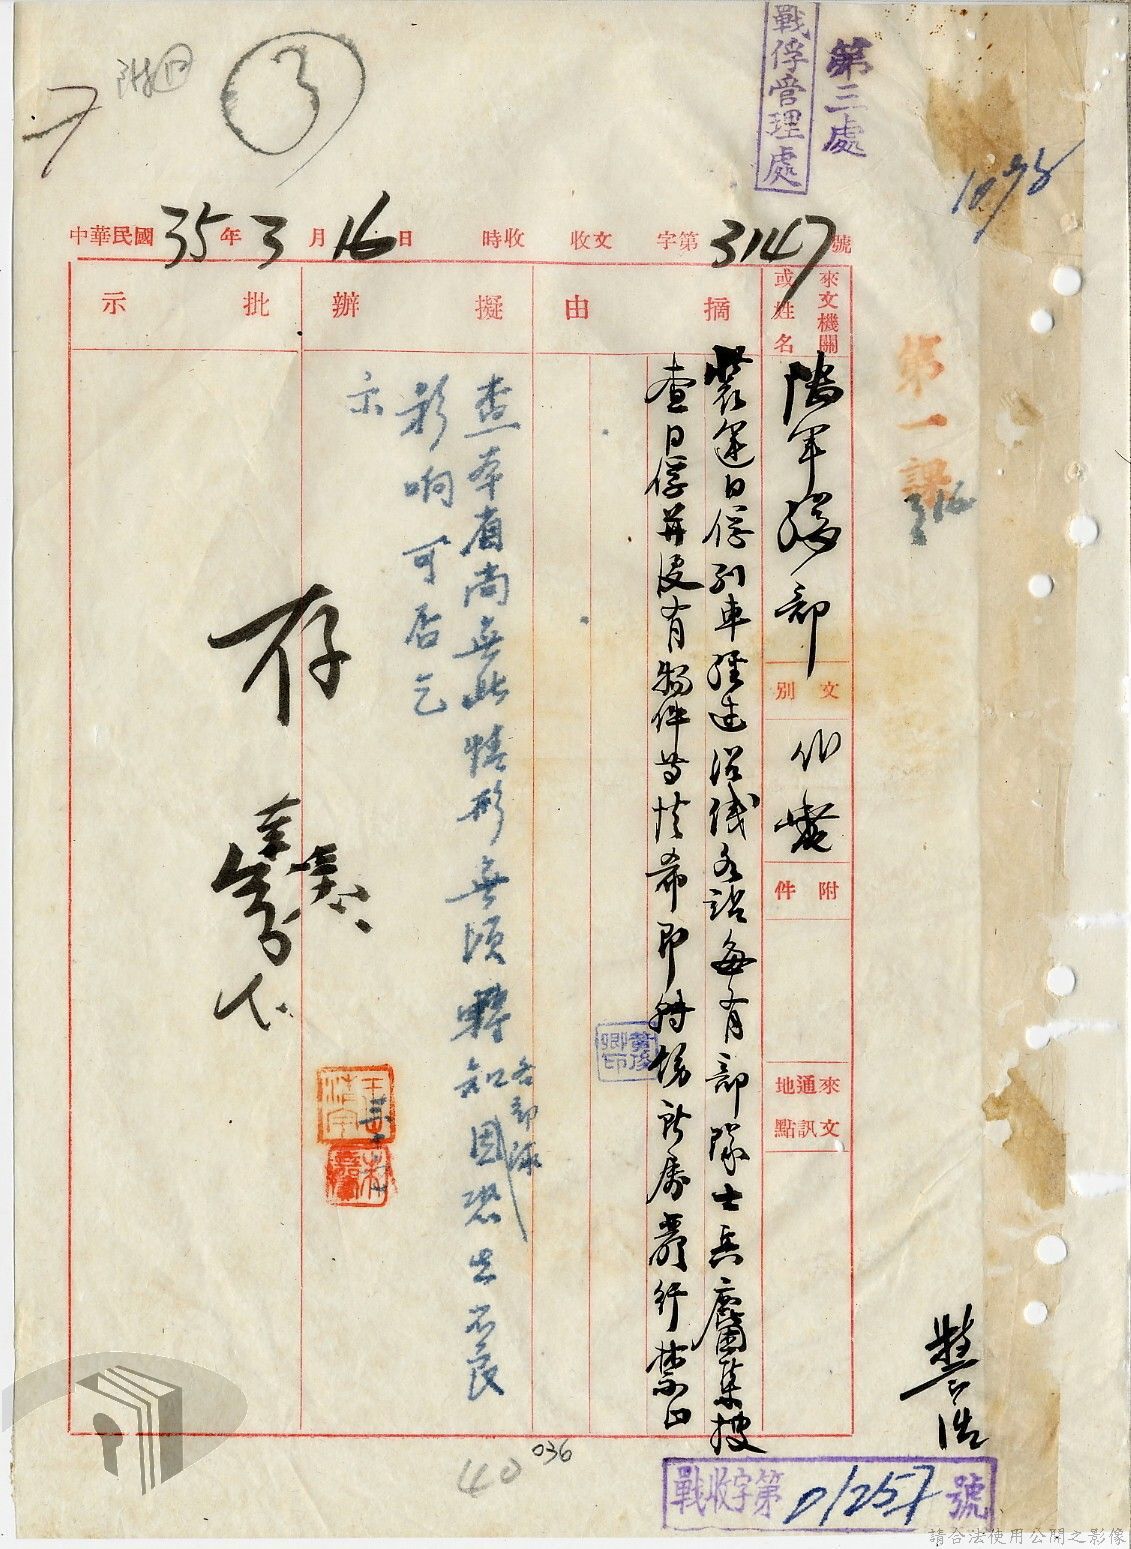 第三處
戰俘管理處
附
3
中華民國35年3月16日 時收 收文 字第3147號
來文機關或姓名
摘由
擬辦
批示
陸軍總部
文別
代電
附件
來文通訊地點
裝運日俘列車經過沿線各站每有部隊士兵麕集搜
查日俘并沒有物件等情希即轉飭所屬嚴行禁止
查本省尚無此情形無須轉知各部隊因恐生不良
影响可否乞
示
存
黃俊卿印
第一課
3 16
036
40
戰收字第01257號
請合法使用公開之影像